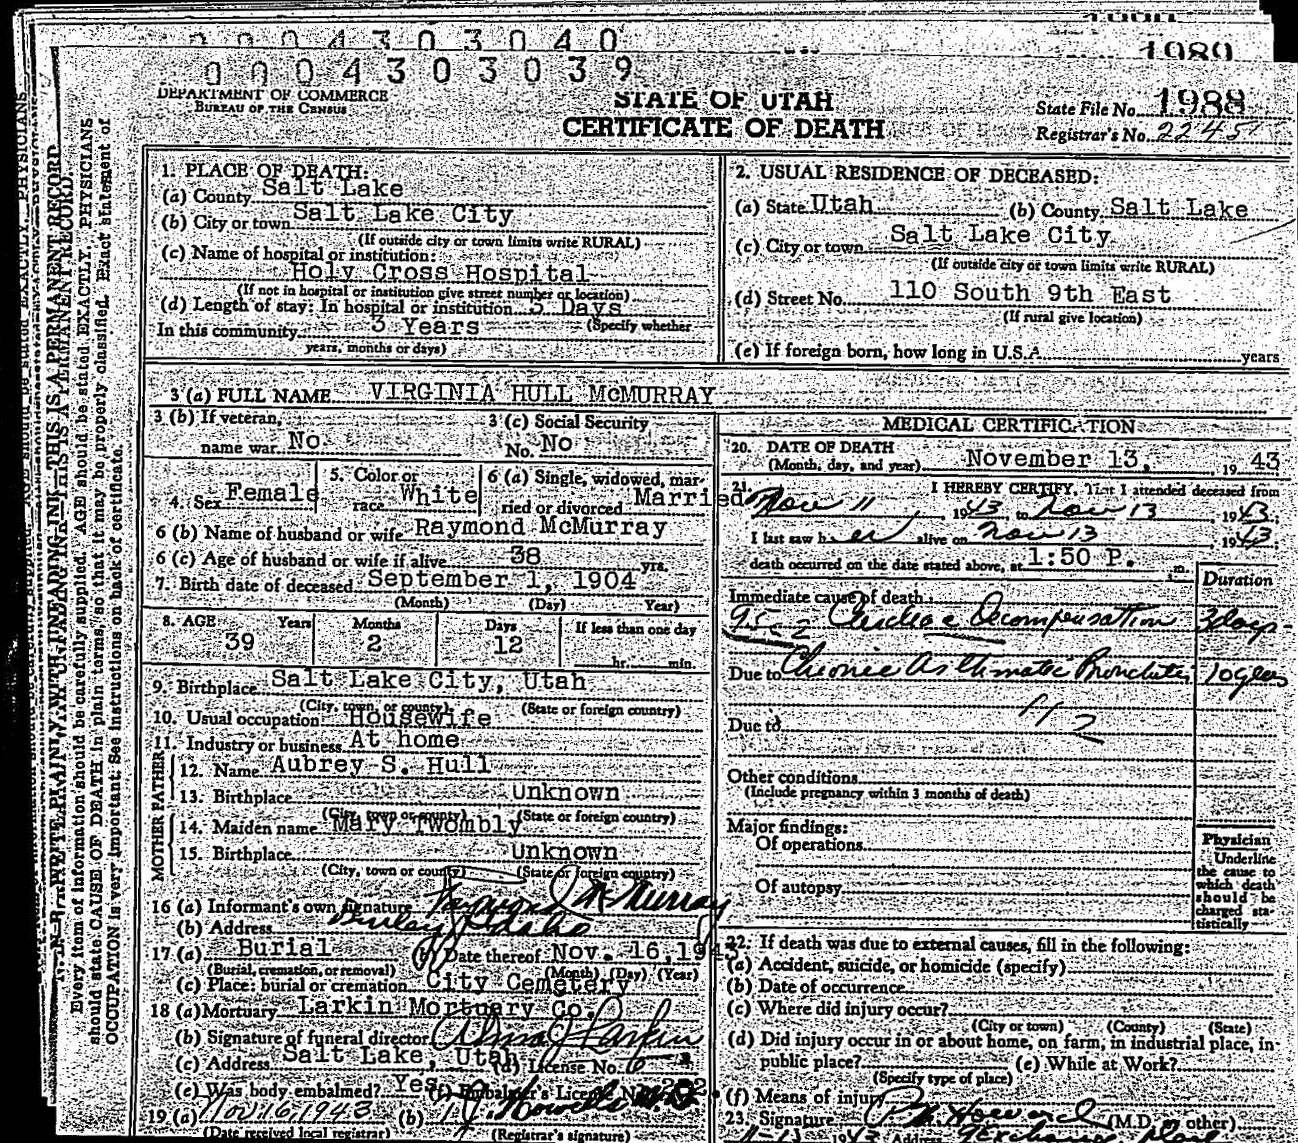 0 0 0 4 3 0 3 0 4 0
1989
0 0 0 4 3 0 3 0 3 9
DEPARTMENT OF COMMERCE
BUREAU OF THE CENSUS
STATE OF UTAH
CERTIFICATE OF DEATH
State File No. 1988
Registrar's No. 2245
1. PLACE OF DEATH:
(a) County Salt Lake
(b) City or town Salt Lake City
(If outside city or town limits write RURAL)
(c) Name of hospital or institution:
Holy Cross Hospital
(If not in hospital or institution give street number or location)
(d) Length of stay: In hospital or institution 3 Days
In this community 3 Years (Specify whether
years, months or days)
2. USUAL RESIDENCE OF DECEASED:
(a) State Utah (b) County Salt Lake
(c) City or town Salt Lake City
(If outside city or town limits write RURAL)
(d) Street No. 110 South 9th East
(If rural give location)
(e) If foreign born, how long in U.S.A. years
3 (a) FULL NAME VIRGINIA HULL McMURRAY
3 (b) If veteran,
name war No
3 (c) Social Security
No. No
4. Sex Female
5. Color or
race White
6 (a) Single, widowed, mar-
ried or divorced Married
6 (b) Name of husband or wife Raymond McMurray
6 (c) Age of husband or wife if alive 38 yrs.
7. Birth date of deceased September 1, 1904
(Month) (Day) Year)
8. AGE Years Months Days If less than one day
39 2 12
hr. min.
9. Birthplace Salt Lake City, Utah
(City, town, or county) (State or foreign country)
10. Usual occupation Housewife
11. Industry or business At home
FATHER
12. Name Aubrey S. Hull
13. Birthplace Unknown
(City, town or county) (State or foreign country)
MOTHER
14. Maiden name Mary Twombly
15. Birthplace Unknown
(City, town or county) (State or foreign country)
16 (a) Informant's own signature Raymond McMurray
(b) Address Burley Idaho
17 (a) Burial (b) Date thereof Nov. 16, 1943
(Burial, cremation, or removal) (Month) (Day) (Year)
(c) Place: burial or cremation City Cemetery
18 (a) Mortuary Larkin Mortuary Co.
(b) Signature of funeral director Alma J Larkin
(c) Address Salt Lake, Utah (d) License No. 6
(e) Was body embalmed? Yes (f) Embalmer's License No.
19 (a) Nov 16, 1943 (b)
(Date received local registrar) (Registrar's signature)
MEDICAL CERTIFICATION
20. DATE OF DEATH
(Month, day, and year) November 13, 1943
21. I HEREBY CERTIFY, That I attended deceased from
Nov 11 1943 to Nov 13, 1943.
I last saw her alive on Nov 13 1943;
death occurred on the date stated above, at 1:50 P. m.
Duration
Immediate cause of death
95-2 Cardiac Decompensation 3 days
Due to Chronic Asthmatic Bronchitis 10 years
112
Due to
Other conditions
(Include pregnancy within 3 months of death)
Major findings:
Of operations
Of autopsy
Physician
Underline
the cause to
which death
should be
charged sta-
tistically
22. If death was due to external causes, fill in the following:
(a) Accident, suicide, or homicide (specify)
(b) Date of occurrence
(c) Where did injury occur?
(City or town) (County) (State)
(d) Did injury occur in or about home, on farm, in industrial place, in
public place? (e) While at Work?
(Specify type of place)
(f) Means of injury
23. Signature (M.D. or other)
Every item of information should be carefully supplied. AGE should be stated EXACTLY. PHYSICIANS
should state CAUSE OF DEATH in plain terms, so that it may be properly classified. Exact statement of
OCCUPATION is very important. See instructions on back of certificate.